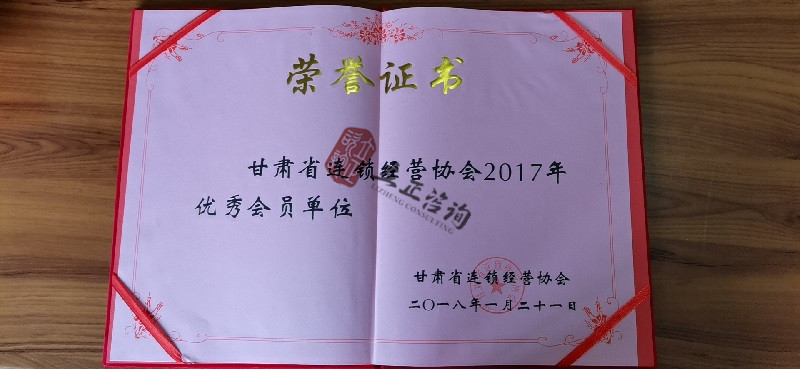 荣誉证书
甘肃省连锁经营协会2017年
优秀会员单位
正咨询
LIZHENG CONSULTING
甘肃省连锁经营协会
二〇一八年一月二十一日